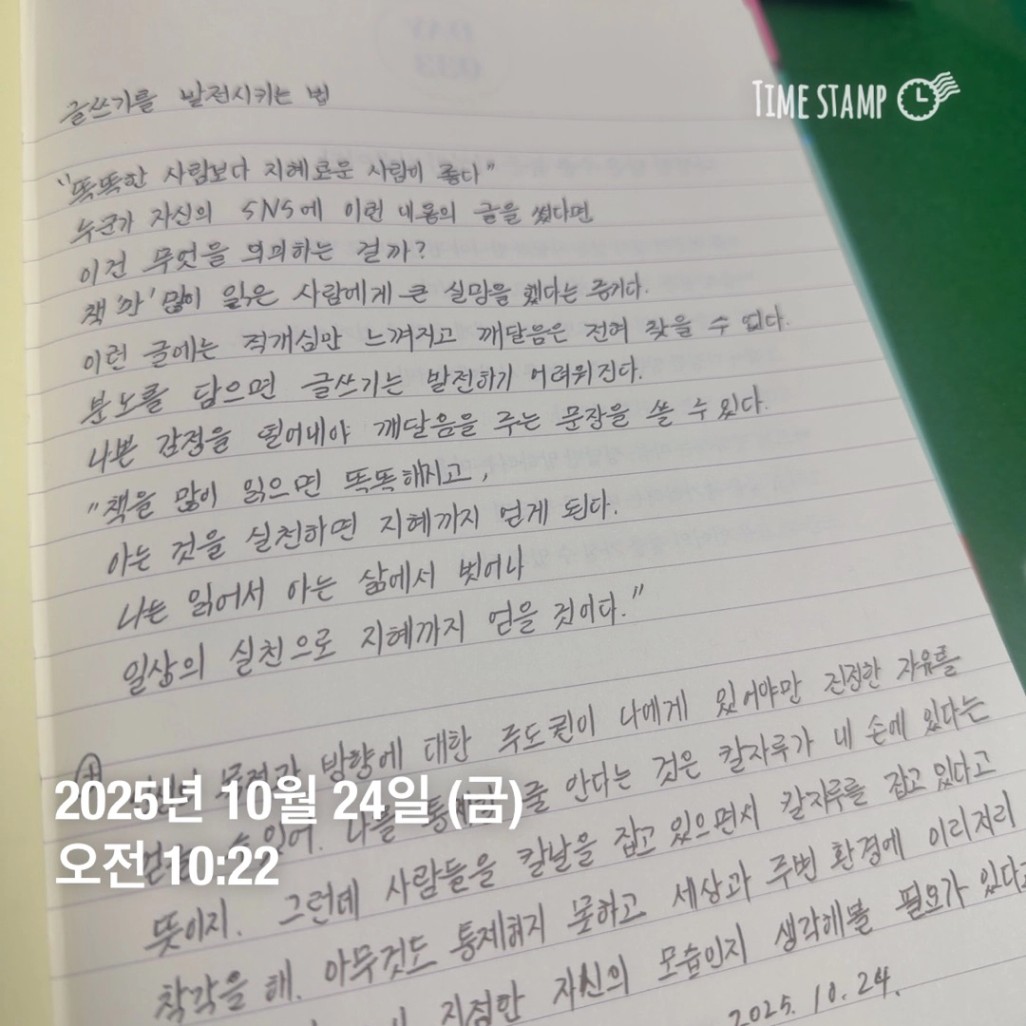 글쓰기를 발전시키는 법
TIME STAMP
"똑똑한 사람보다 지혜로운 사람이 좋다"
누군가 자신의 SNS에 이런 내용의 글을 썼다면
이건 무엇을 의미하는 걸까?
책'만' 많이 읽은 사람에게 큰 실망을 했다는 증거다.
이런 글에는 적개심만 느껴지고 깨달음은 전혀 찾을 수 없다.
분노를 담으면 글쓰기는 발전하기 어려워진다.
나쁜 감정을 덜어내야 깨달음을 주는 문장을 쓸 수 있다.
"책을 많이 읽으면 똑똑해지고,
아는 것을 실천하면 지혜까지 얻게 된다.
나는 읽어서 아는 삶에서 벗어나
일상의 실천으로 지혜까지 얻을 것이다."
방향에 대한 주도권이 나에게 있어야만 진정한 자유를
수 있어. 나를 줄 안다는 것은 칼자루가 내 손에 있다는
뜻이지. 그런데 사람들은 칼날을 잡고 있으면서 칼자루를 잡고 있다고
착각을 해. 아무것도 통제하지 못하고 세상과 주변 환경에 이리저리
진정한 자신의 모습인지 생각해볼 필요가 있다고
2025. 10. 24.
2025년 10월 24일 (금)
오전 10:22